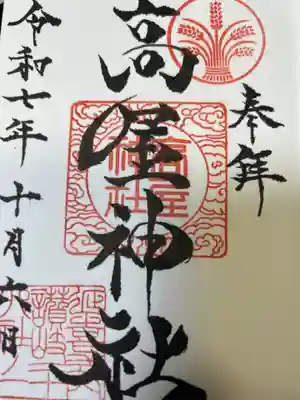 奉拝
高屋神社
令和七年十月六日
高屋神社